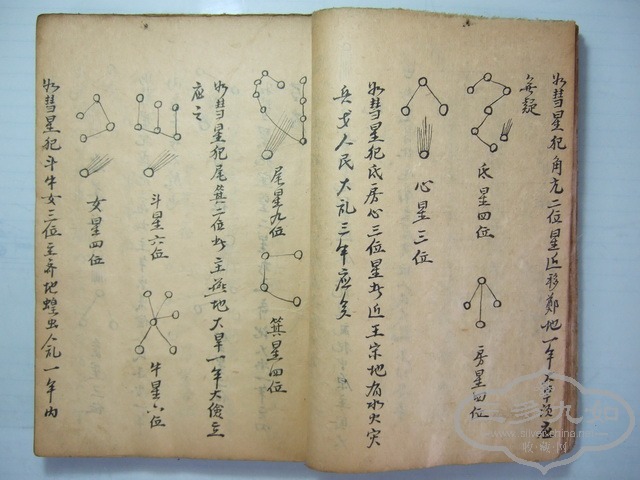 如彗星犯角亢二位星近移鄭地一年大旱
無疑
氐星四位
房星四位
心星三位
如彗星犯氐房心三位星如近主宋地有水火灾
兵戈人民大乱三年应矣
尾星九位
箕星四位
如彗星犯尾箕二位如主燕地大旱一年大儉立
应之
斗星六位
牛星六位
女星四位
如彗星犯斗牛女三位主齐地蝗虫人乱一年内
www.chinaall.net